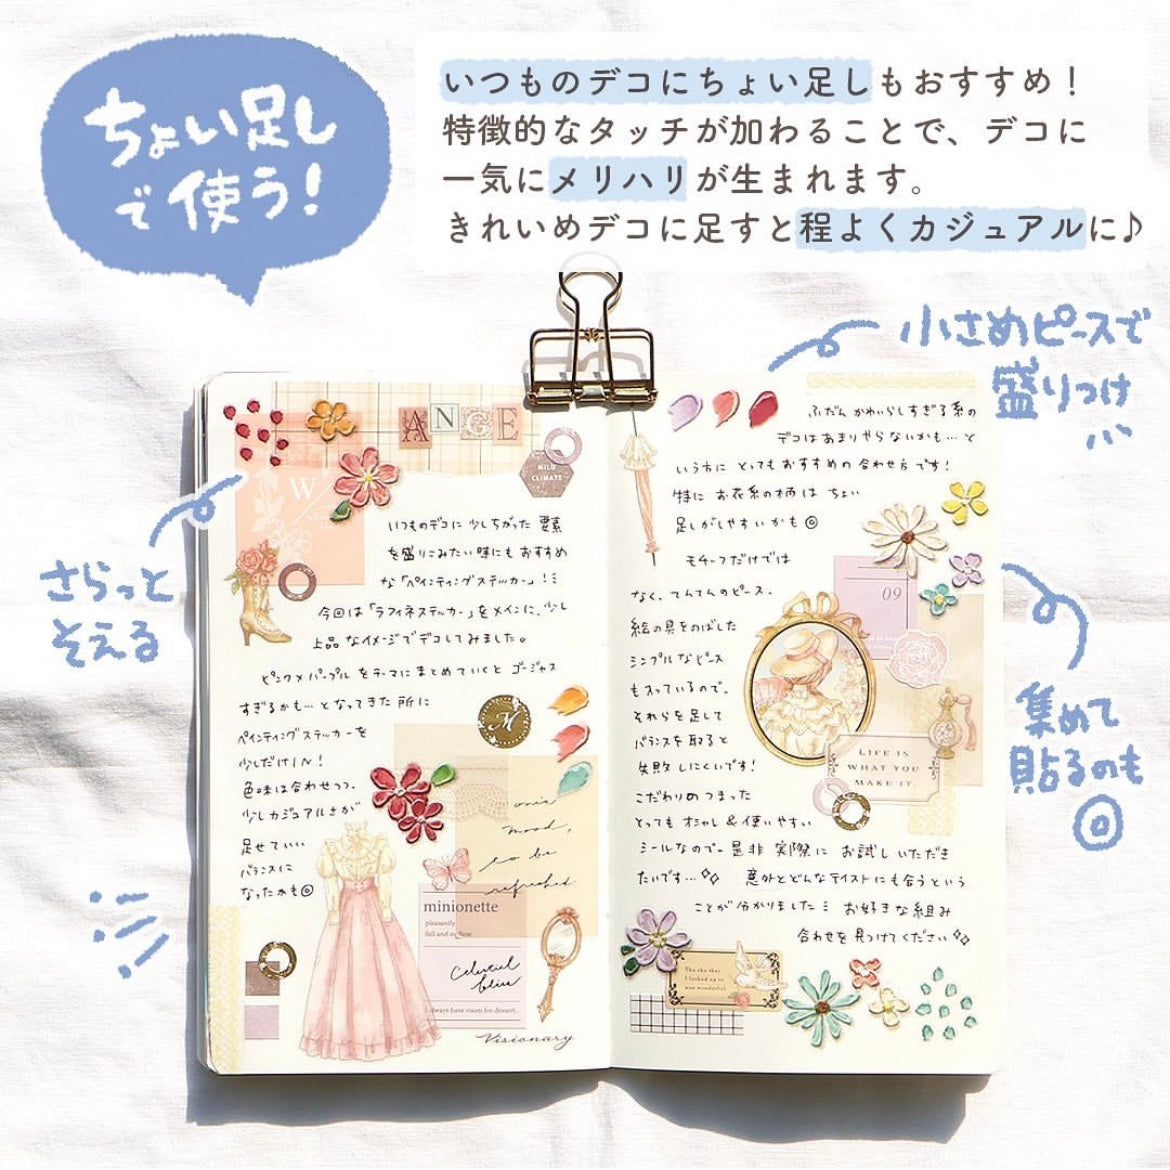 ちょい足し
で使う!
いつものデコにちょい足しもおすすめ!
特徴的なタッチが加わることで、デコに
一気にメリハリが生まれます。
きれいめデコに足すと程よくカジュアルに♪
小さめピースで
盛りつけ
さらっと
そえる
集めて
貼るのも
◎
ANGE
W
MILD
CLIMATE
いつものデコに少しちがった要素
を盛りこみたい時にもおすすめ
な「ペインティングステッカー」!
今回は「ラフィネステッカー」をメインに、少し
上品なイメージでデコしてみました。
ピンク×パープルをテーマにまとめていくとゴージャス
すぎるかも…となってきた所に
ペインティングステッカーを
少しだけIN!
色味は合わせつつ、
少しカジュアルさが
足せていい
バランスに
なったかも◎
M
mood,
to be
refreshed
minionette
pleasantly
full and mellow
Celestial
bliss
always have room for dessert.
Visionary
ふだんかわいらしすぎる系の
デコはあまりやらないかも…と
いう方にとってもおすすめの合わせ方です!
特にお花系の柄はちょい
足しがしやすいかも◎
モチーフだけでは
なく、てんてんのピース、
絵の具をのばした
シンプルなピース
も入っているので、
それらを足して
バランスを取ると
失敗しにくいです!
こだわりのつまった
とってもオシャレ&使いやすい
シールなので、是非実際にお試しいただき
たいです… 意外とどんなテイストにも合うという
ことが分かりました! お好きな組み
合わせを見つけてください
09
LIFE IS
WHAT YOU
MAKE IT.
The sky that
I looked up to
was wonderful.